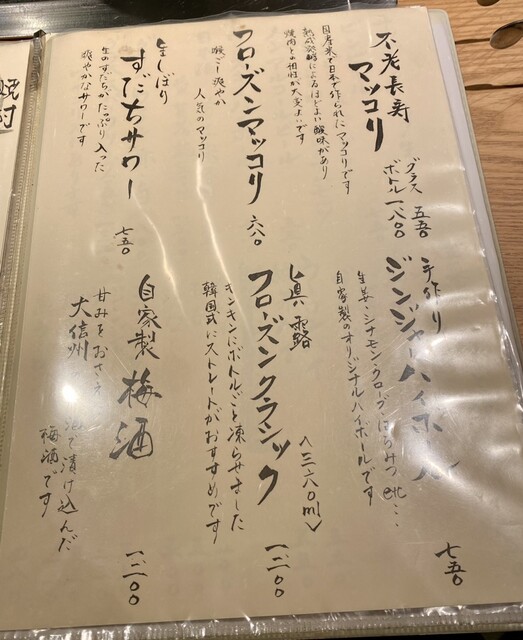 不老長寿
マッコリ
国産米で日本で作られたマッコリです
熟成発酵によるほどよい酸味があり
焼肉との相性が大変よいです
グラス 五五〇
ボトル 一八〇〇
フローズンマッコリ
喉ごし爽やか
人気のマッコリ
六八〇
生しぼり
すだちサワー
生のすだちがたっぷり入った
爽やかなサワーです
七五〇
手作り
ジンジャーハイボール
生姜・シナモン・クローブ・はちみつ etc…
自家製のオリジナルハイボールです
七五〇
眞露
フローズンクラシック
<三六〇ml>
キンキンにボトルごと凍らせました
韓国式にストレートがおすすめです
一二〇〇
自家製
梅酒
甘みをおさえ
大信州
で漬け込んだ
梅酒です
一二〇〇